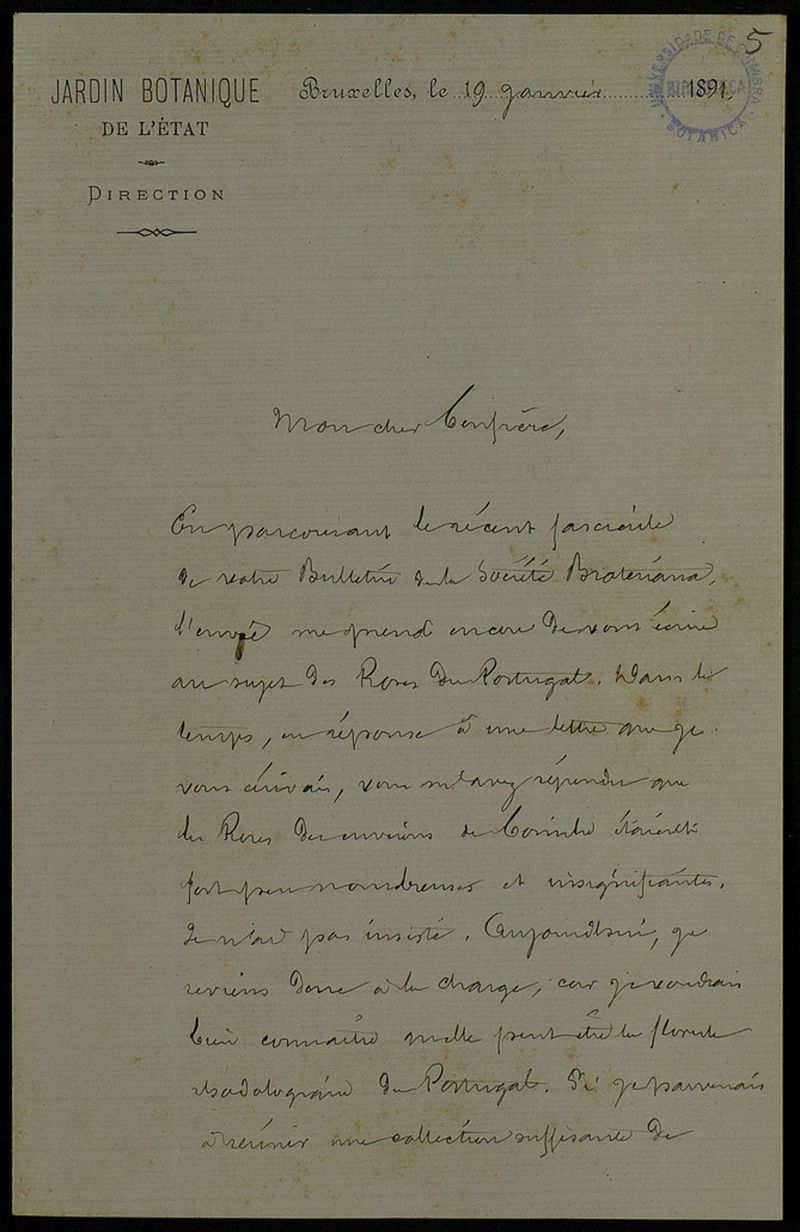 5
JARDIN BOTANIQUE
DE L'ÉTAT
DIRECTION
Bruxelles, le 19 janvier 1891
UNIVERSIDADE DE COIMBRA
BIBLIOTECA
BOTANICA
Mon cher Confrère,
En parcourant le récent fascicule
de votre Bulletin de la Société Broteriana,
l'envie me prend encore de vous écrire
au sujet des Roses du Portugal. Dans le
temps, en réponse à une lettre que je
vous écrivais, vous m'avez répondu que
les Roses des environs de Coimbre étaient
fort peu nombreuses et insignifiantes.
Je n'ai pas insisté. Aujourd'hui, je
reviens donc à la charge, car je voudrais
bien connaître quelle peut être la florule
rhodologique du Portugal. Si je parvenais
à réunir une collection suffisante de